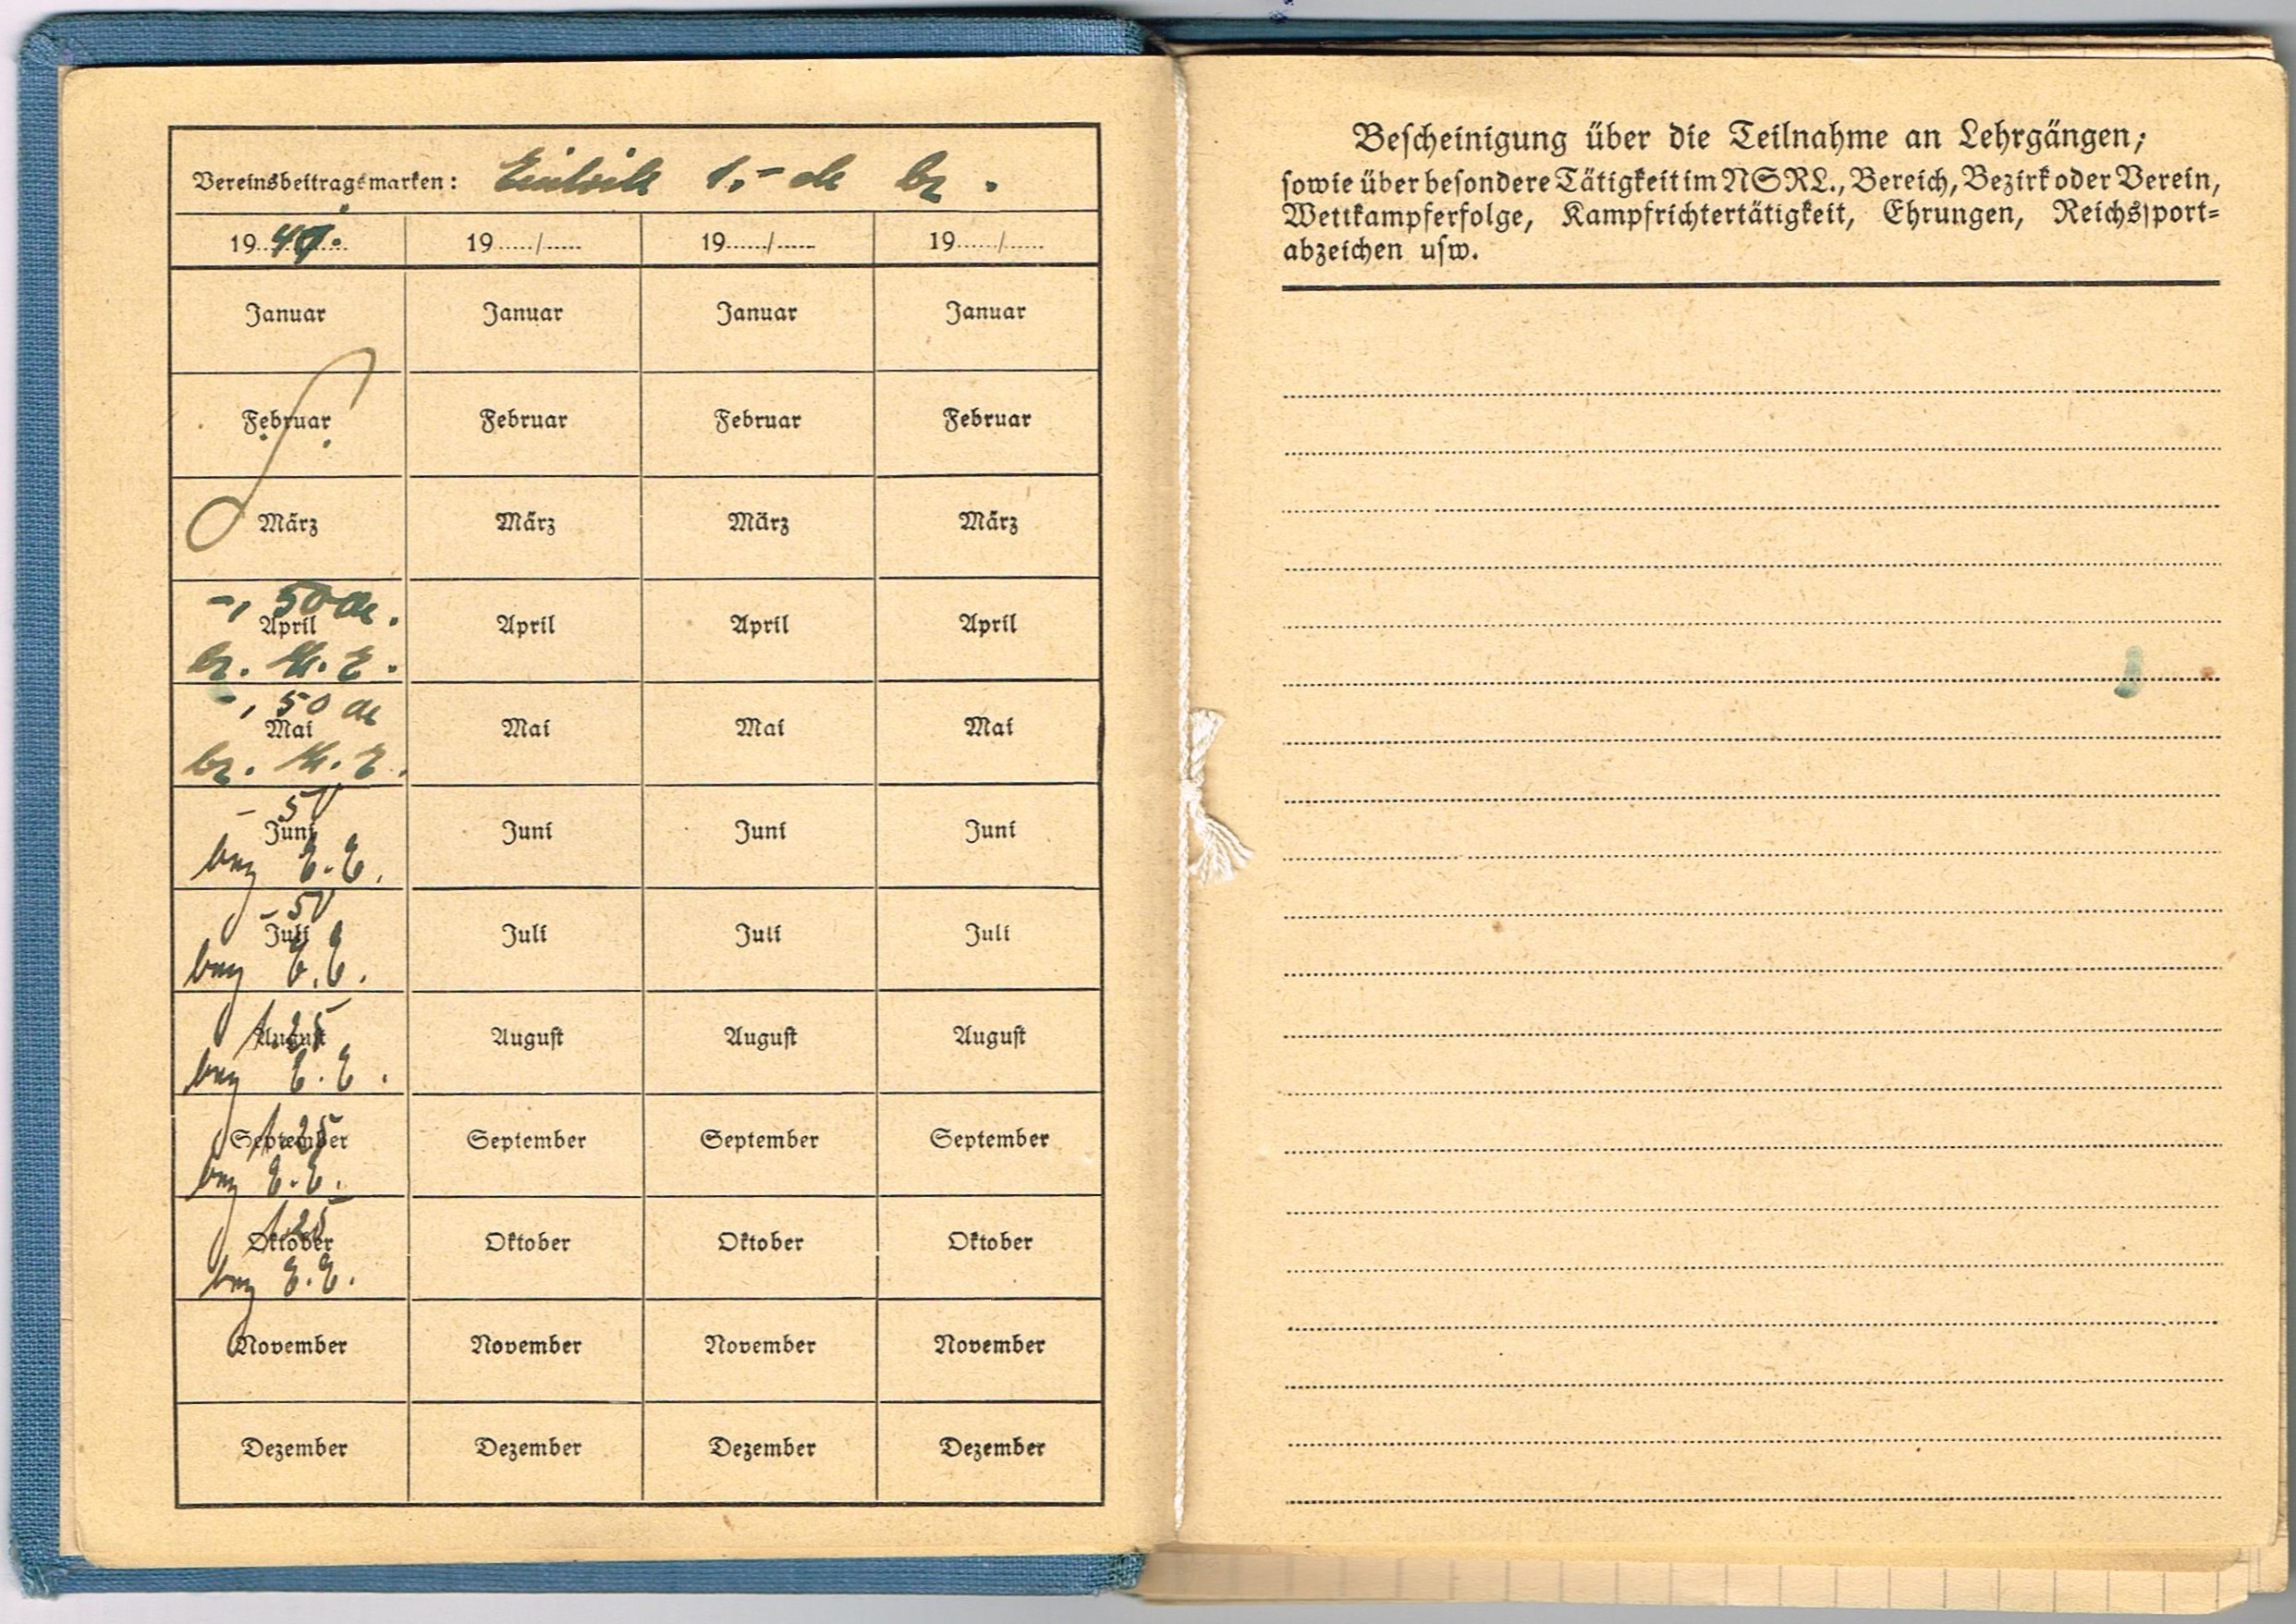 Vereinsbeitragsmarken: Eintritt 1.- bz.
19 19...../..... 19...../..... 19...../.....
Januar Januar Januar Januar
Februar Februar Februar Februar
März März März März
-, 50
April April April April
bz.
-, 50
Mai Mai Mai Mai
bz.
- 50
Juni Juni Juni Juni
bez E.E.
- 50
Juli Juli Juli Juli
bez E.E.
1.25
August August August August
bez E.E.
1.25
September September September September
bez E.E.
1.25
Oktober Oktober Oktober Oktober
bez E.E.
November November November November
Dezember Dezember Dezember Dezember
Bescheinigung über die Teilnahme an Lehrgängen;
sowie über besondere Tätigkeit im NSRL., Bereich, Bezirk oder Verein,
Wettkampferfolge, Kampfrichtertätigkeit, Ehrungen, Reichssport-
abzeichen usw.